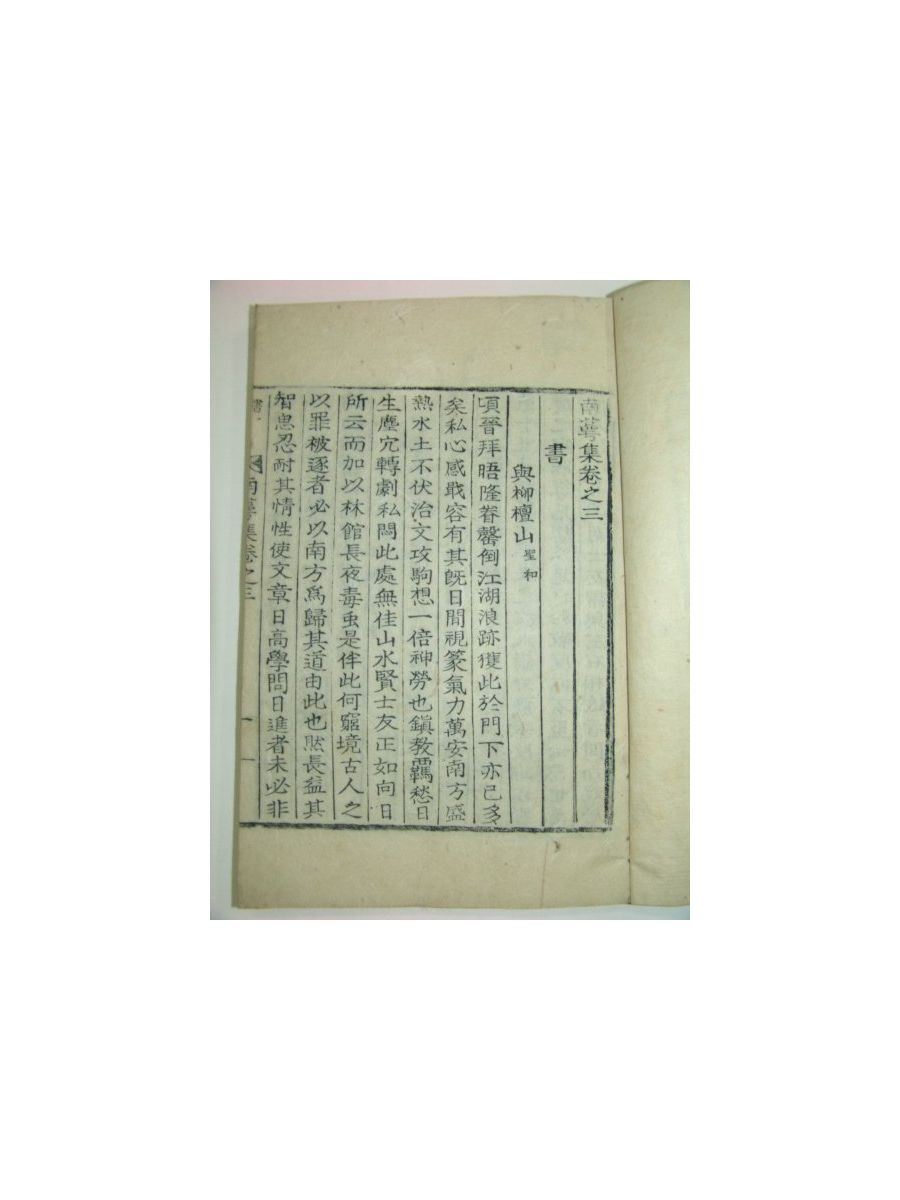 南蓴集卷之三
書
與柳檀山 聖和
頃晉拜晤隆眷罄倒江湖浪跡獲此於門下亦已多
矣私心感戢容有其旣日間視篆氣力萬安南方盛
熱水土不伏治文攻駒想一倍神勞也鎭教羈愁日
生塵冗轉劇私悶此處無佳山水賢士友正如向日
所云而加以林館長夜毒䖝是伴此何窮境古人之
以罪被逐者必以南方爲歸其道由此也然長益其
智思忍耐其情性使文章日高學問日進者未必非
南蓴集卷之三